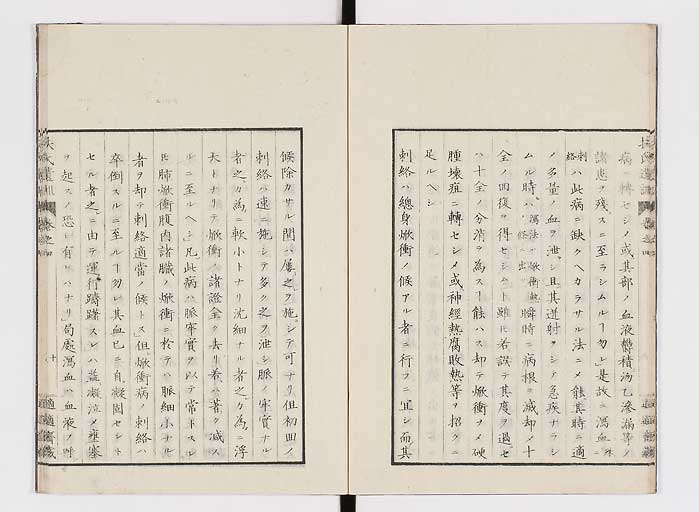 病ニ轉セシメ或其部ノ血液鬱積而乙滲漏等ノ
諸患ヲ殘スニ至ラシムルヿ勿レ」是故ニ瀉血ニ
刺絡ハ此病ニ缺クヘカラサル法ニメ能其時ニ適
ノ多量ノ血ヲ泄シ且其迸射ヲシテ急疾ナラシ
ムル時ハ瀉法ハ焮衝熱條ニ出ツ瞬時ニ病根ヲ滅却ノ十
全ノ回復ヲ得セシムト雖𪜈若誤テ其度ヲ過セ
ハ十全ノ分消ヲ為スヿ能ハス却テ焮衝ヲメ硬
腫壊疽ニ轉セシメ或神經熱腐敗熱等ヲ招クニ
足ルヘシ
刺絡ハ總身焮衝ノ候アル者ニ行フニ宜シ而其
候除カサル間ハ屡之ヲ施シテ可ナリ但初回ノ
刺絡ハ速ニ施シテ多ク之ヲ泄シ脈ノ牢實ナル
者之カ為ニ軟小トナリ沈細ナル者之カ為ニ浮
大トナリテ焮衝ノ諸證全ク去リ若ハ著ク減ス
ルニ至ルヘシ」凡此病ハ脈牢實ヲ以テ常トスレ
𪜈肺焮衝腹内諸臓ノ焮衝ニ於テハ脈細小ナル
者ヲ却テ刺絡適當ノ候トス」但焮衝病ノ刺絡ハ
卒倒スルニ至ルヿ勿レ其血已ニ自凝固セント
セル者之ニ由テ運行躊躇スレハ益凝泣メ壅塞
ヲ起スノ恐レ有レハナリ」局處瀉血ハ血液ノ
扶氏遺訓 卷之四 十 適適齋藏